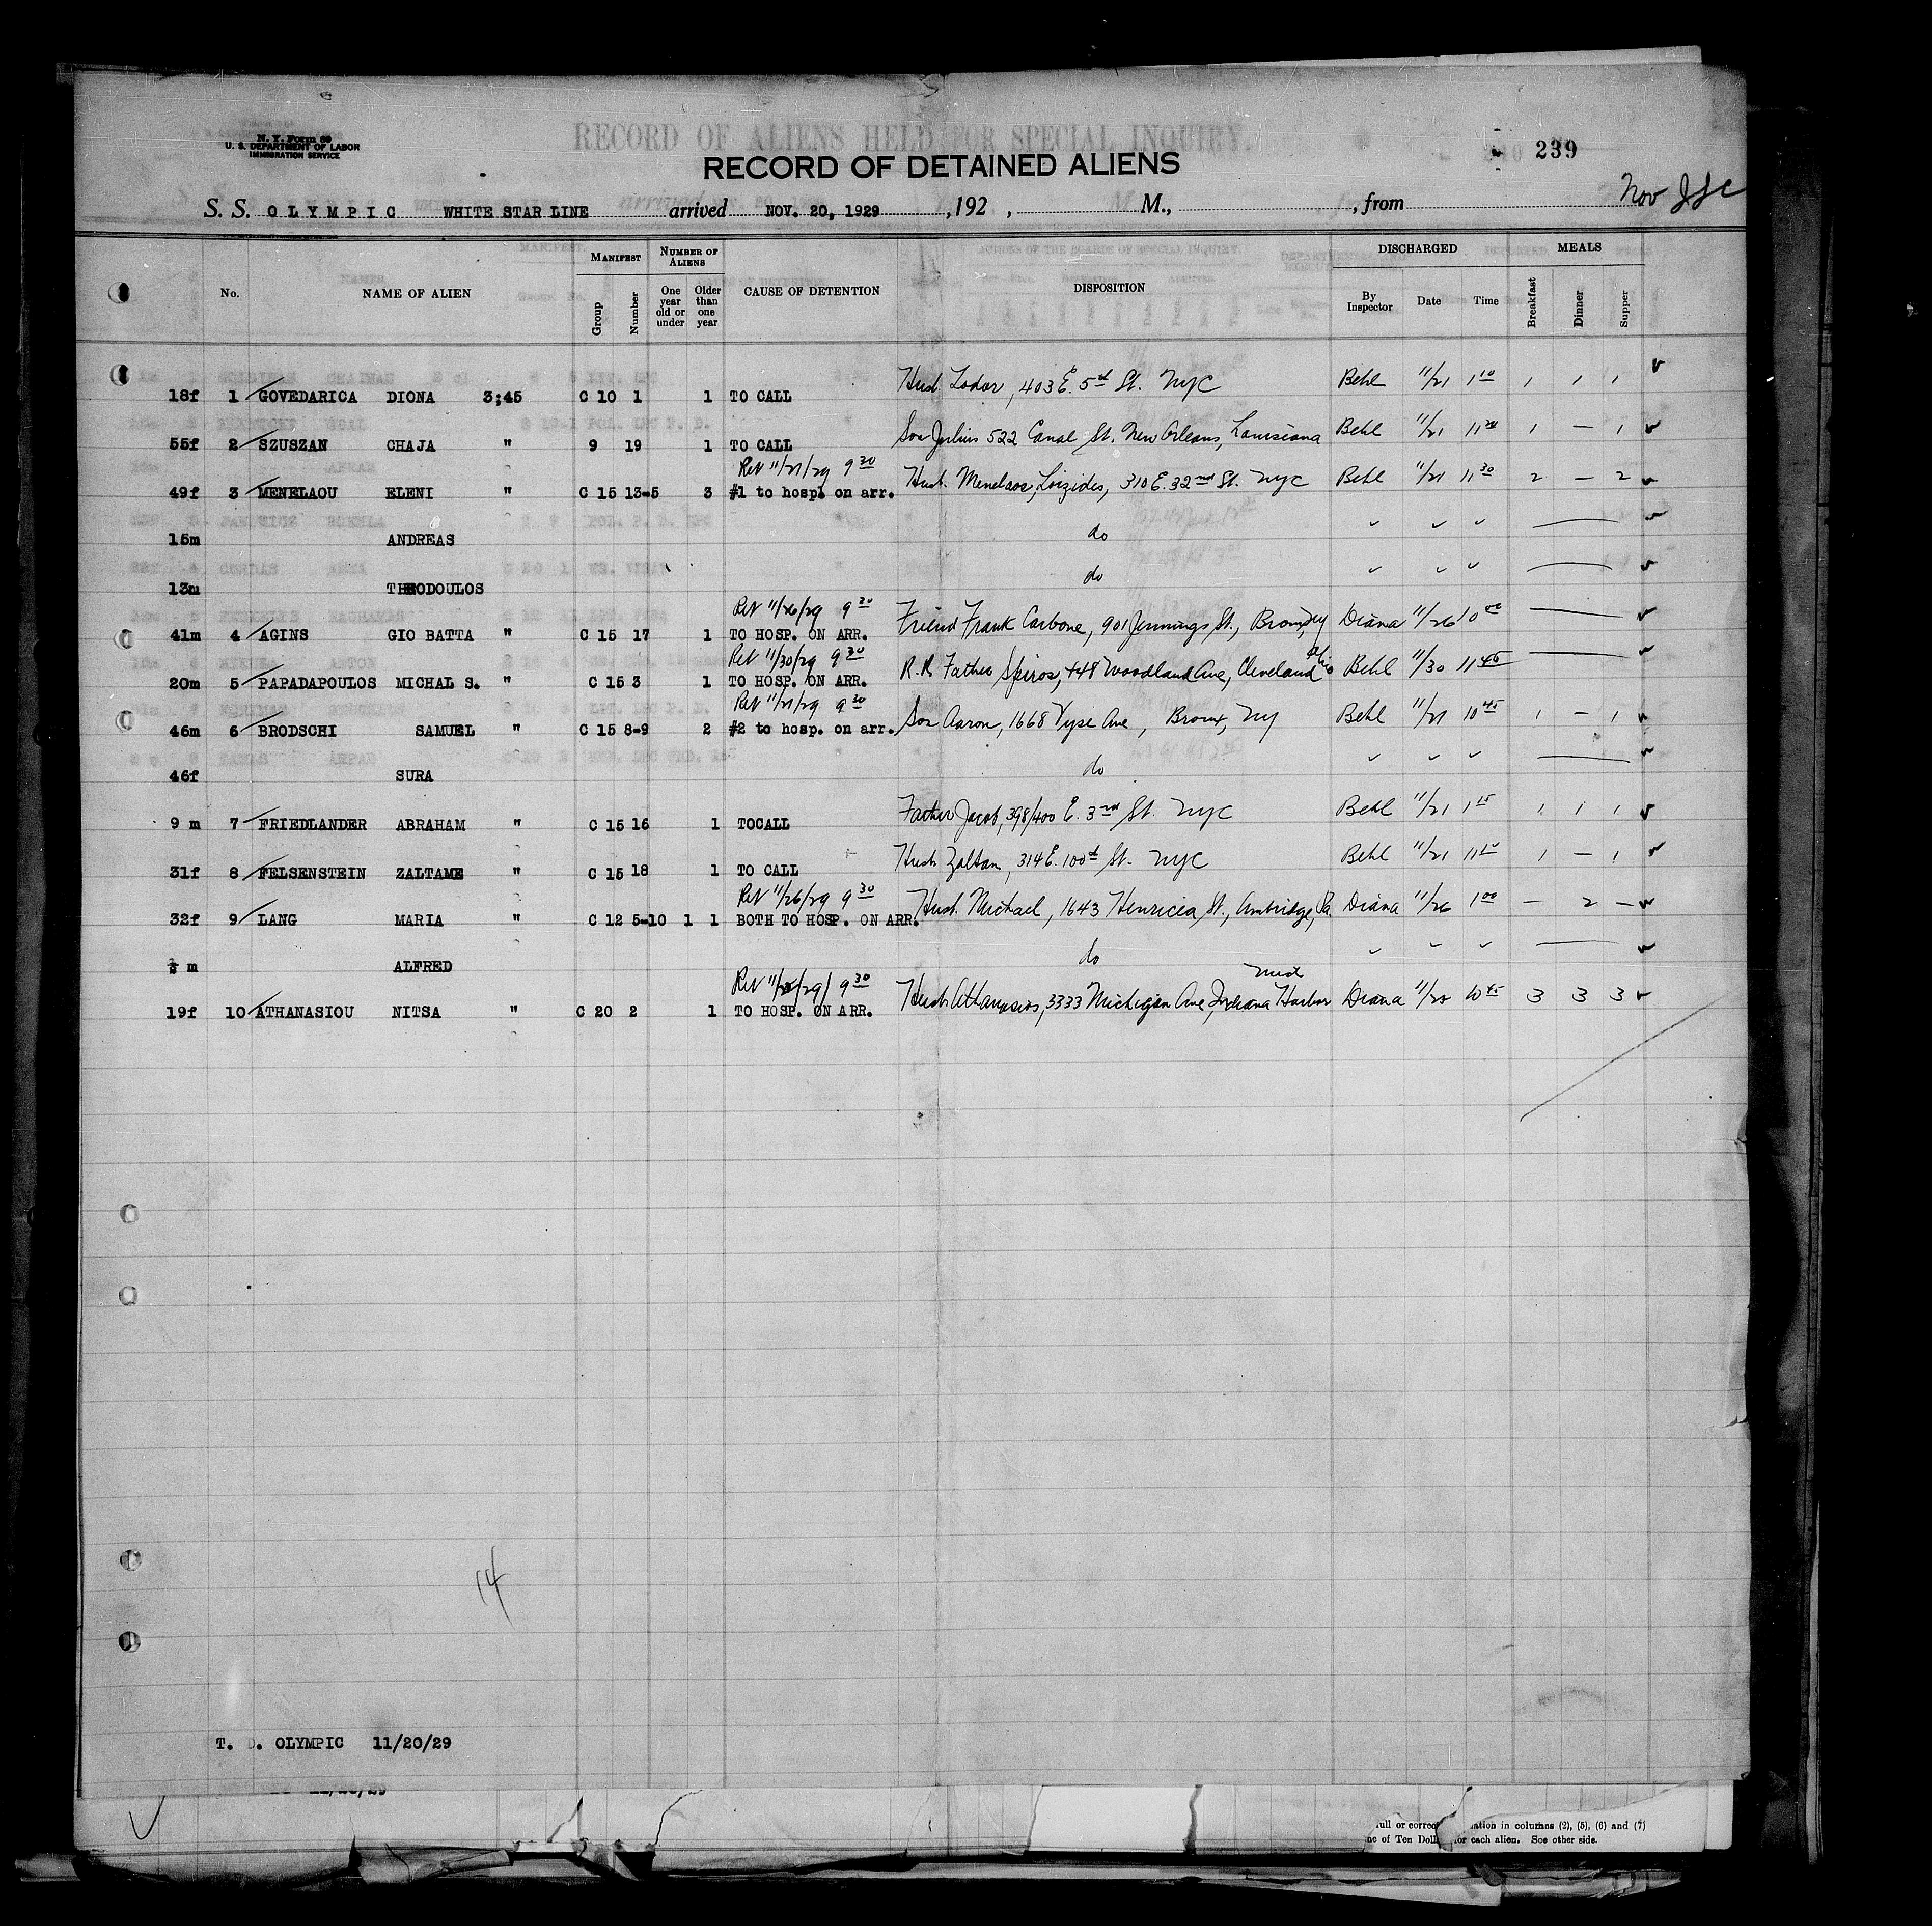 N. Y. Form 89
U. S. DEPARTMENT OF LABOR
IMMIGRATION SERVICE
RECORD OF ALIENS HELD FOR SPECIAL INQUIRY.
RECORD OF DETAINED ALIENS
239
S. S. OLYMPIC WHITE STAR LINE arrived NOV. 20, 1929 , 192 , M., , from Nov
No. NAME OF ALIEN MANIFEST Group Number NUMBER OF ALIENS One year old or under Older than one year CAUSE OF DETENTION DISPOSITION DISCHARGED By Inspector Date Time MEALS Breakfast Dinner Supper
18f 1 GOVEDARICA DIONA 3;45 C 10 1 1 TO CALL Husb. Todor, 403 E. 5th St. NYC Behl 11/21 1 10 1 1 1
55f 2 SZUSZAN CHAJA " 9 19 1 TO CALL Son Julius 522 Canal St. New Orleans, Louisiana Behl 11/21 11 20 1 — 1
Ret 11/21/29 9 30
49f 3 MENELAOU ELENI " C 15 13-5 3 #1 to hosp. on arr. Husb. Menelaos, Loizides, 310 E. 32nd St. NYC Behl 11/21 11 30 2 — 2
15m ANDREAS do
13m THEODOULOS do
Ret 11/26/29 9 30
41m 4 AGINS GIO BATTA " C 15 17 1 TO HOSP. ON ARR. Friend Frank Carbone, 901 Jennings St., Bronx, NY Diana 11/26
Ret 11/30/29 9 30
20m 5 PAPADAPOULOS MICHAL S. " C 15 3 1 TO HOSP. ON ARR. R.R. Father Spiros, 448 Woodland Ave, Cleveland Ohio Behl 11/30 11 45
Ret 11/21/29 9 30
46m 6 BRODSCHI SAMUEL " C 15 8-9 2 #2 to hosp. on arr. Son Aaron, 1668 Vyse Ave, Bronx, NY Behl 11/21 10 45 1 — 1
46f SURA do
9 m 7 FRIEDLANDER ABRAHAM " C 15 16 1 TOCALL Father Jacob, 398/400 E. 3rd St. NYC Behl 11/21 1 15 1 1 1
31f 8 FELSENSTEIN ZALTAME " C 15 18 1 TO CALL Husb Zoltan, 314 E. 100th St. NYC Behl 11/21 11 10 1 — 1
Ret 11/26/29 9 30
32f 9 LANG MARIA " C 12 5-10 1 1 BOTH TO HOSP. ON ARR. Husb. Michael, 1643 Henricea St., Ambridge, Pa. Diana 11/26 1 00 — 2 —
½ m ALFRED do
19f 10 ATHANASIOU NITSA " C 20 2 1 TO HOSP. ON ARR. Husb Athanasios, 3333 Michigan Ave, Indiana Harbor Diana 10 45 3 3 3
14
T. D. OLYMPIC 11/20/29
full or correct
ation in columns (2), (5), (6) and (7)
ne of Ten Doll
for each alien. See other side.